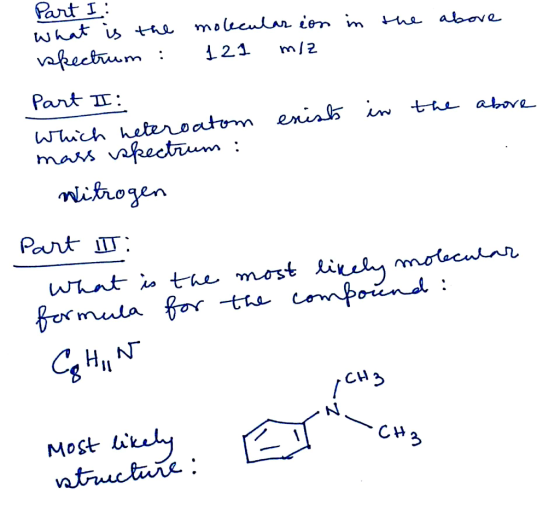 Part I:
What is the molecular ion in the above
spectrum : 121 m/z
Part II:
Which heteroatom exists in the above
mass spectrum :
Nitrogen
Part III:
What is the most likely molecular
formula for the compound :
C8H11N
CH3
N
CH3
Most likely
structure :